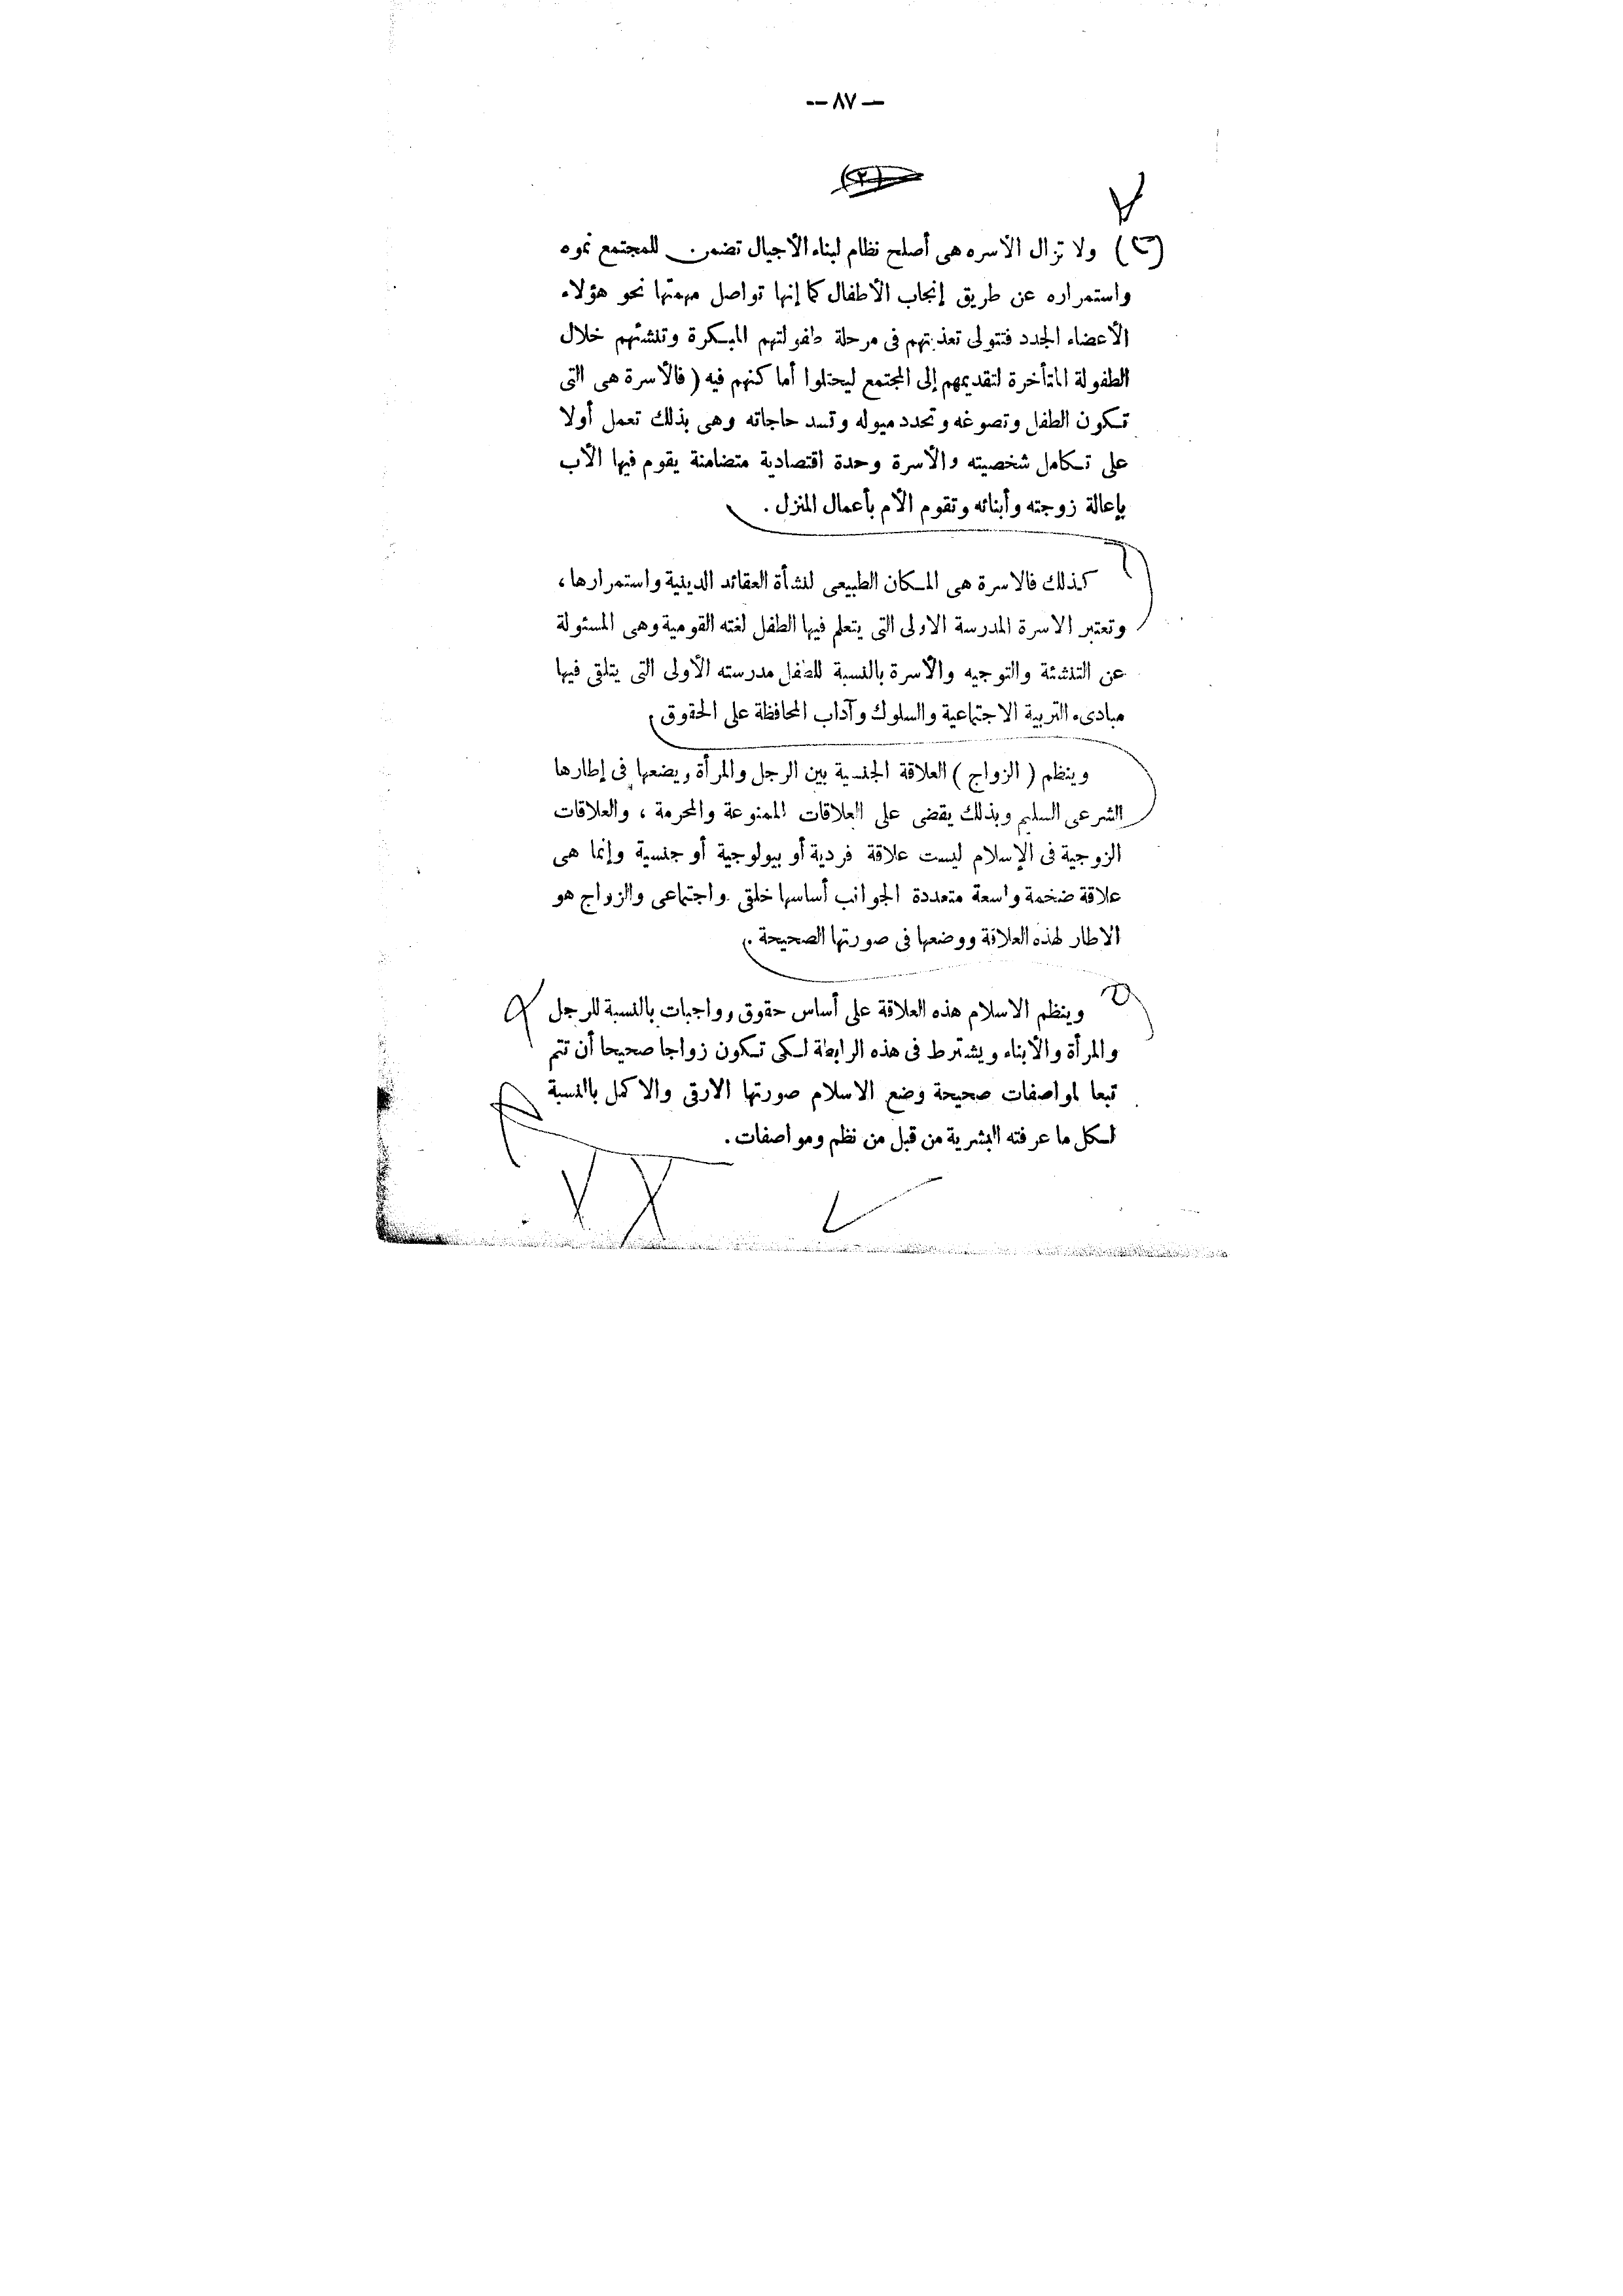 — ٨٧ —
(٢)
(٢) ولا تزال الأسره هى أصلح نظام لبناء الأجيال تضمن للمجتمع نموه
واستمراره عن طريق إنجاب الأطفال كما إنها تواصل مهمتها نحو هؤلاء
الأعضاء الجدد فتتولى تعذيتهم فى مرحلة طفولتهم المبكرة وتنشئهم خلال
الطفولة المتأخرة لتقديمهم إلى المجتمع ليحتلوا أماكنهم فيه ( فالأسرة هى التى
تكون الطفل وتصوغه وتحدد ميوله وتسد حاجاته وهى بذلك تعمل أولا
على تكامل شخصيته والأسرة وحدة اقتصادية متضامنة يقوم فيها الأب
بإعالة زوجته وأبنائه وتقوم الأم بأعمال المنزل .
كذلك فالاسرة هى المكان الطبيعى لنشأة العقائد الدينية واستمرارها ،
وتعتبر الاسرة المدرسة الاولى التى يتعلم فيها الطفل لغته القومية وهى المسئولة
عن التنشئة والتوجيه والأسرة بالنسبة للطفل مدرسته الأولى التى يتلقى فيها
مبادىء التربية الاجتماعية والسلوك وآداب المحافظة على الحقوق
وينظم ( الزواج ) العلاقة الجنسية بين الرجل والمرأة ويضعها فى إطارها
الشرعى السليم وبذلك يقضى على العلاقات الممنوعة والمحرمة ، والعلاقات
الزوجية فى الإسلام ليست علاقة فردية أو بيولوجية أو جنسية وإنما هى
علاقة ضخمة واسعة متعددة الجوانب أساسها خلقى واجتماعى والزواج هو
الاطار لهذه العلاقة ووضعها فى صورتها الصحيحة .
وينظم الاسلام هذه العلاقة على أساس حقوق وواجبات بالنسبة للرجل
والمرأة والأبناء ويشترط فى هذه الرابطة لكى تكون زواجا صحيحا أن تتم
تبعا لمواصفات صحيحة وضع الاسلام صورتها الارقى والاكمل بالنسبة
لكل ما عرفته البشرية من قبل من نظم ومواصفات .